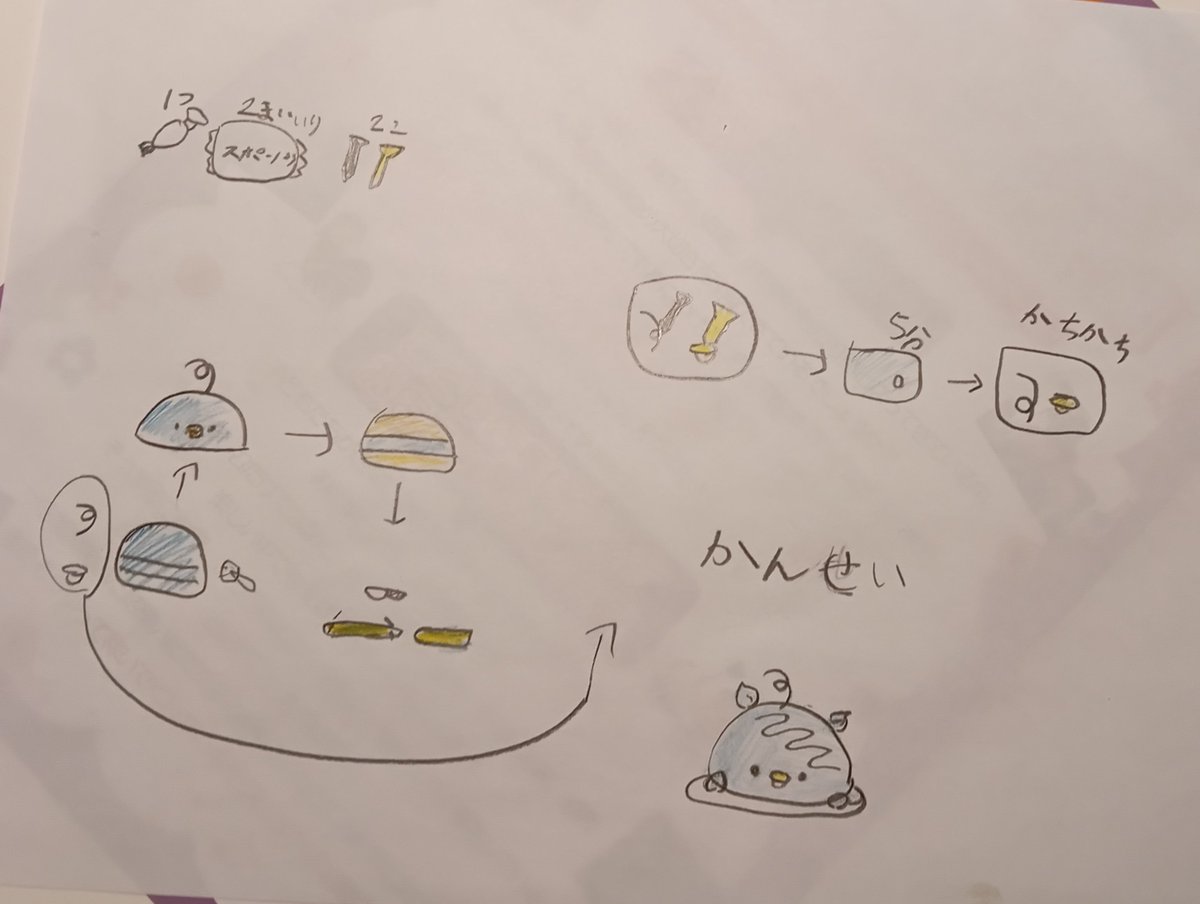 1つ
2まいいり
スポンジ
22
5分
かちかち
かんせい